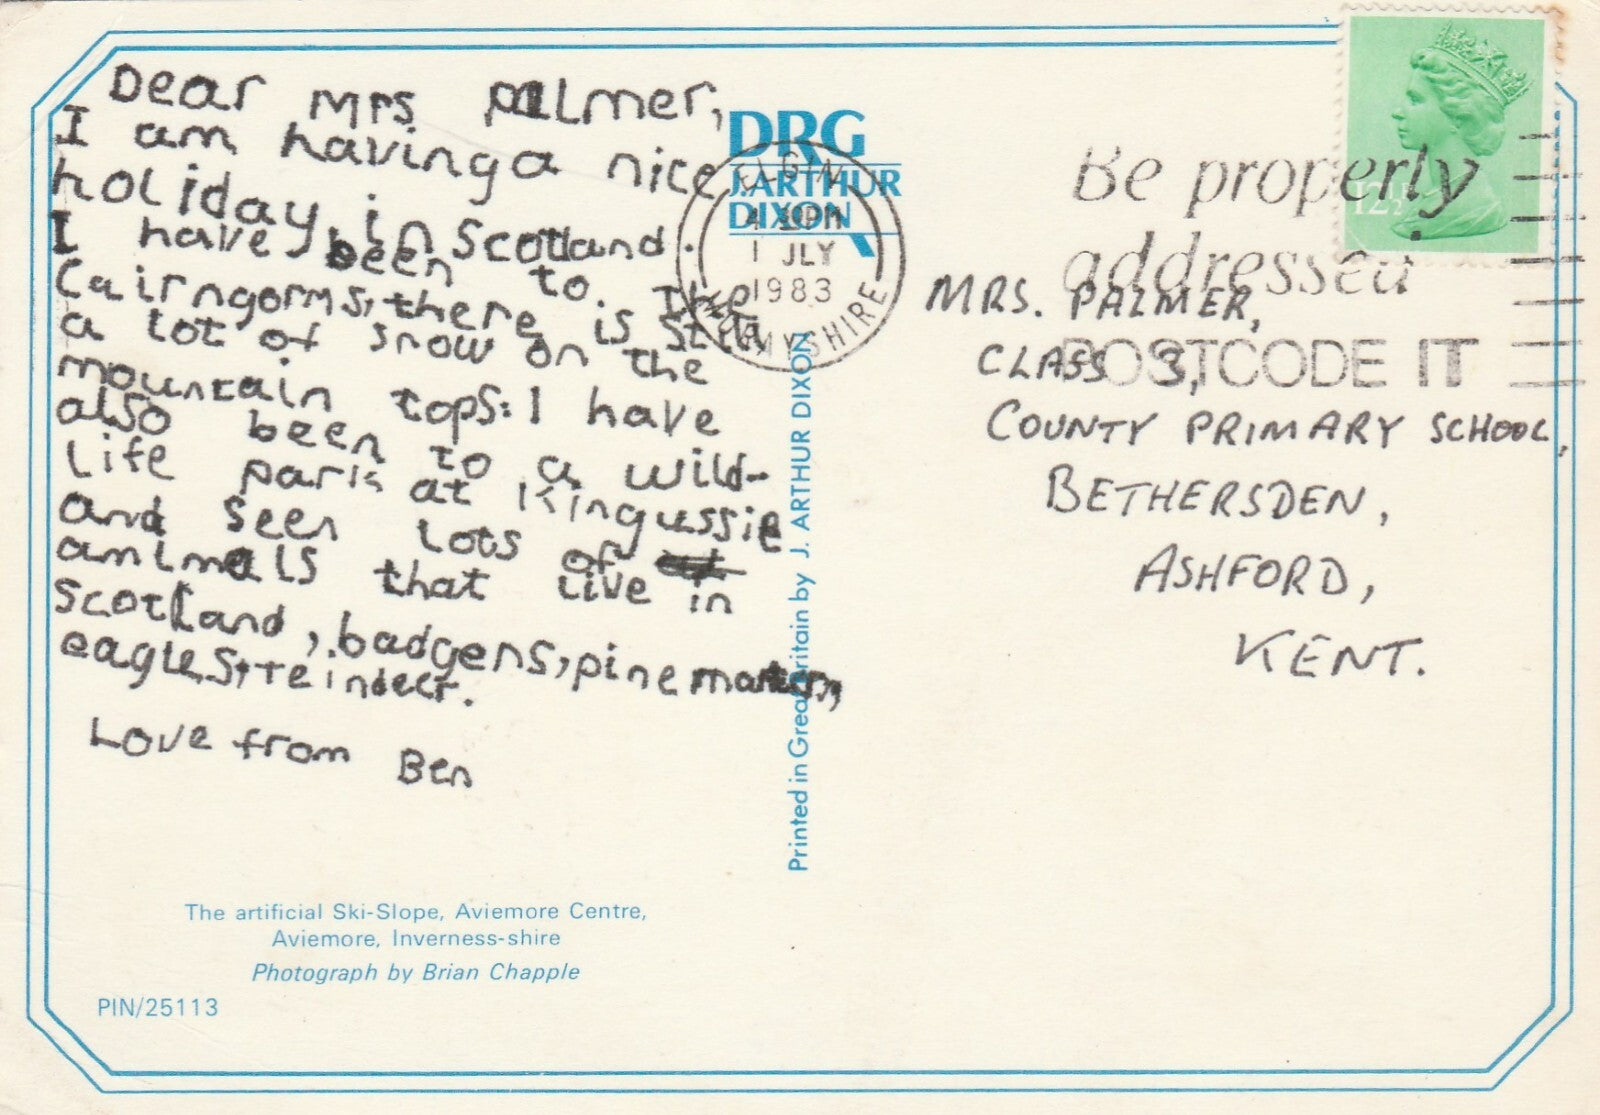 Dear Mrs Palmer,
I am having a nice
holiday in Scotland.
I have been to. The
Cairngorms, there is still
a lot of snow on the
mountain tops. I have
also been to a wild-
life park at Kingussie
and seen lots of
animals that live in
Scotland, badgers, pine martens,
eagles, reindeer.
Love from Ben
The artificial Ski-Slope, Aviemore Centre,
Aviemore, Inverness-shire
Photograph by Brian Chapple
PIN/25113
DRG
J. ARTHUR
DIXON
ELGIN
4 PM
1 JLY
1983
MORAYSHIRE
Printed in Great Britain by J. ARTHUR DIXON
Be properly
addressed
POSTCODE IT
12½P
MRS. PALMER,
CLASS 3,
COUNTY PRIMARY SCHOOL,
BETHERSDEN,
ASHFORD,
KENT.